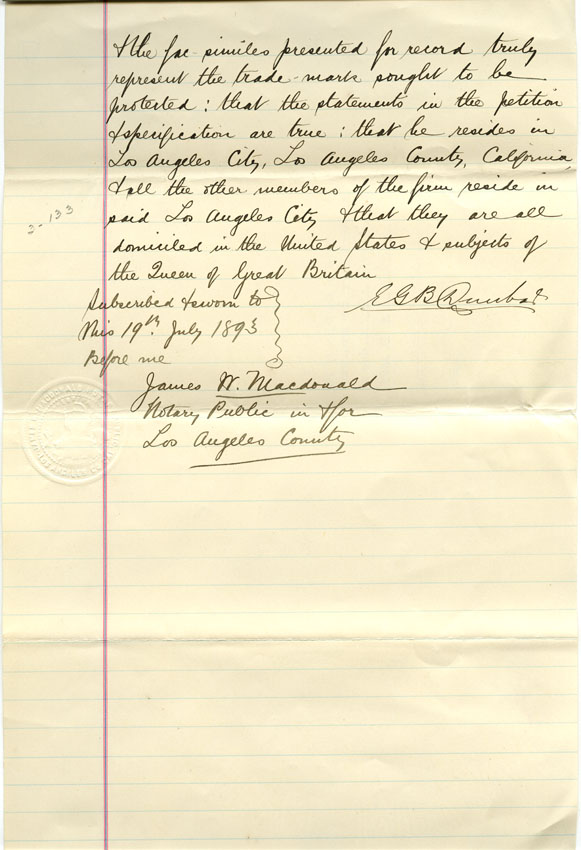 & the fac-similes presented for record truly
represent the trade-mark sought to be
protected; that the statements in the petition
& specification are true; that he resides in
Los Angeles City, Los Angeles County, California,
& all the other members of the firm reside in
said Los Angeles City & that they are all
domiciled in the United States & subjects of
the Queen of Great Britain
E G B Dunbar
Subscribed & sworn to
this 19th July 1893
Before me
James W. Macdonald
Notary Public in & for
Los Angeles County
3-133